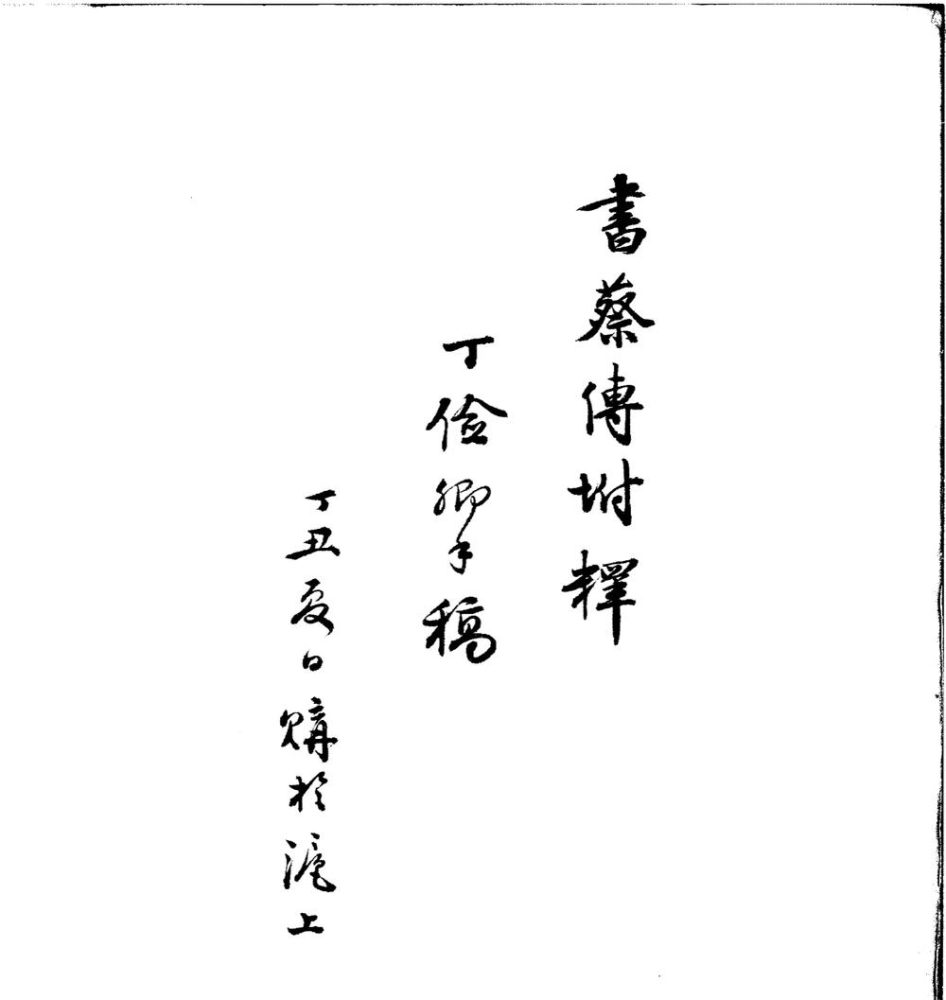 書蔡傳坿釋
丁儉卿手稿
丁丑夏日購於滬上